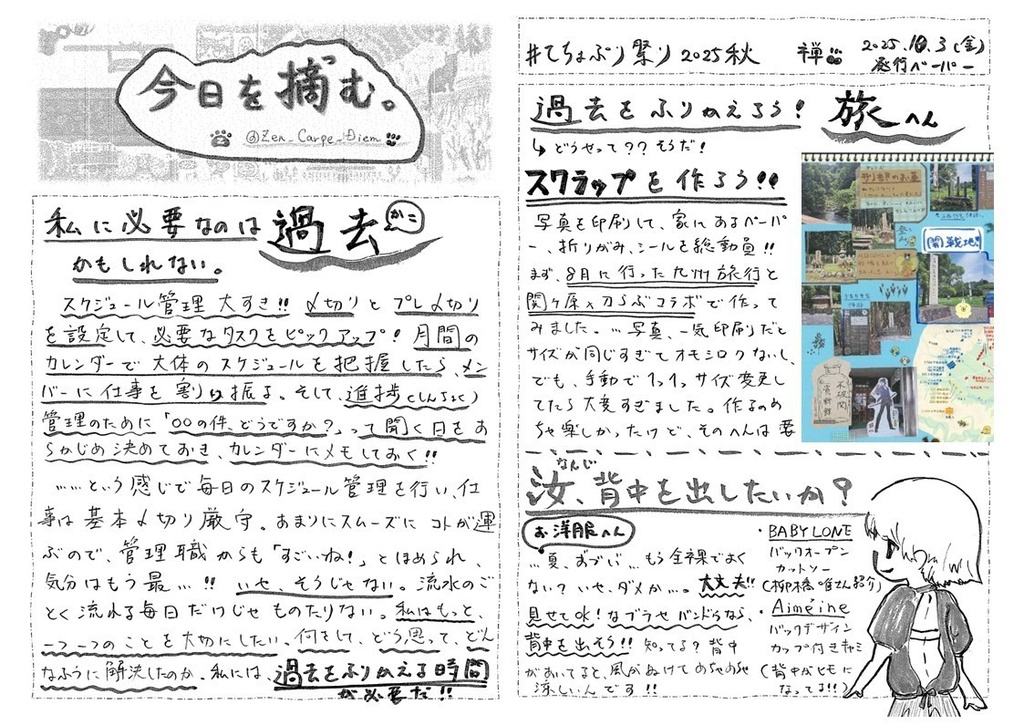 今日を摘む。
@Zen_Carpe_Diem
私に必要なのは過去
かこ
かもしれない。
スケジュール管理 大すき!! 〆切りとプレ〆切り
を設定して、必要なタスクをピックアップ! 月間の
カレンダーで大体のスケジュールを把握したら、メン
バーに仕事を割り振よ。そして、進捗(しんちょく)
管理のために「〇〇の件、どうですか?」って聞く日をあ
らかじめ決めておき、カレンダーにメモしておく!!
……という感じで毎日のスケジュール管理を行い、仕
事は基本〆切り厳守。あまりにスムーズにコトが運
ぶので、管理職からも「すごいね!」とほめられ、
気分はもう最…!! いや、そうじゃない。流水のご
とく流れる毎日だけじゃものたりない。私はもっと、
一つ一つのことを大切にしたい。何をして、どう思って、どん
なふうに解決したのか。私には、過去をふりかえる時間
が必要だ!!
#てちょぶり祭り2025秋 禅
2025.10.3(金)
発行ペーパー
過去をふりかえろう! 旅へん
↳どうやって?? そうだ!
スクラップを作ろう!!
写真を印刷して、家にあるペーパ
ー、折りがみ、シールを総動員!!
まず、8月に行った九州旅行と
関ヶ原×刀らぶコラボで作って
みました。…写真、一気印刷だと
サイズが同じすぎてオモシロクないし、
でも、手動で1つ1つサイズ変更し
てたら大変すぎました。作るのめ
ちゃ楽しかったけど、そのへんは要
開戦地!
不破関
資料館
なんじ
汝、背中を出したいか?
お洋服へん
…夏、あづい… もう全裸でよく
ない? いや、ダメか…。大丈夫!!
見せてOK!なブラやバンドゥなら、
背中を出そう!! 知ってる? 背中
があいてると、風がぬけてめちゃめちゃ
涼しいんです!!
・BABYLONE
バックオープン
カットソー
(柳橋唯さん紹介)
・Aiméine
バックデザイン
カップ付きキャミ
(背中がヒモに
なってる!!)